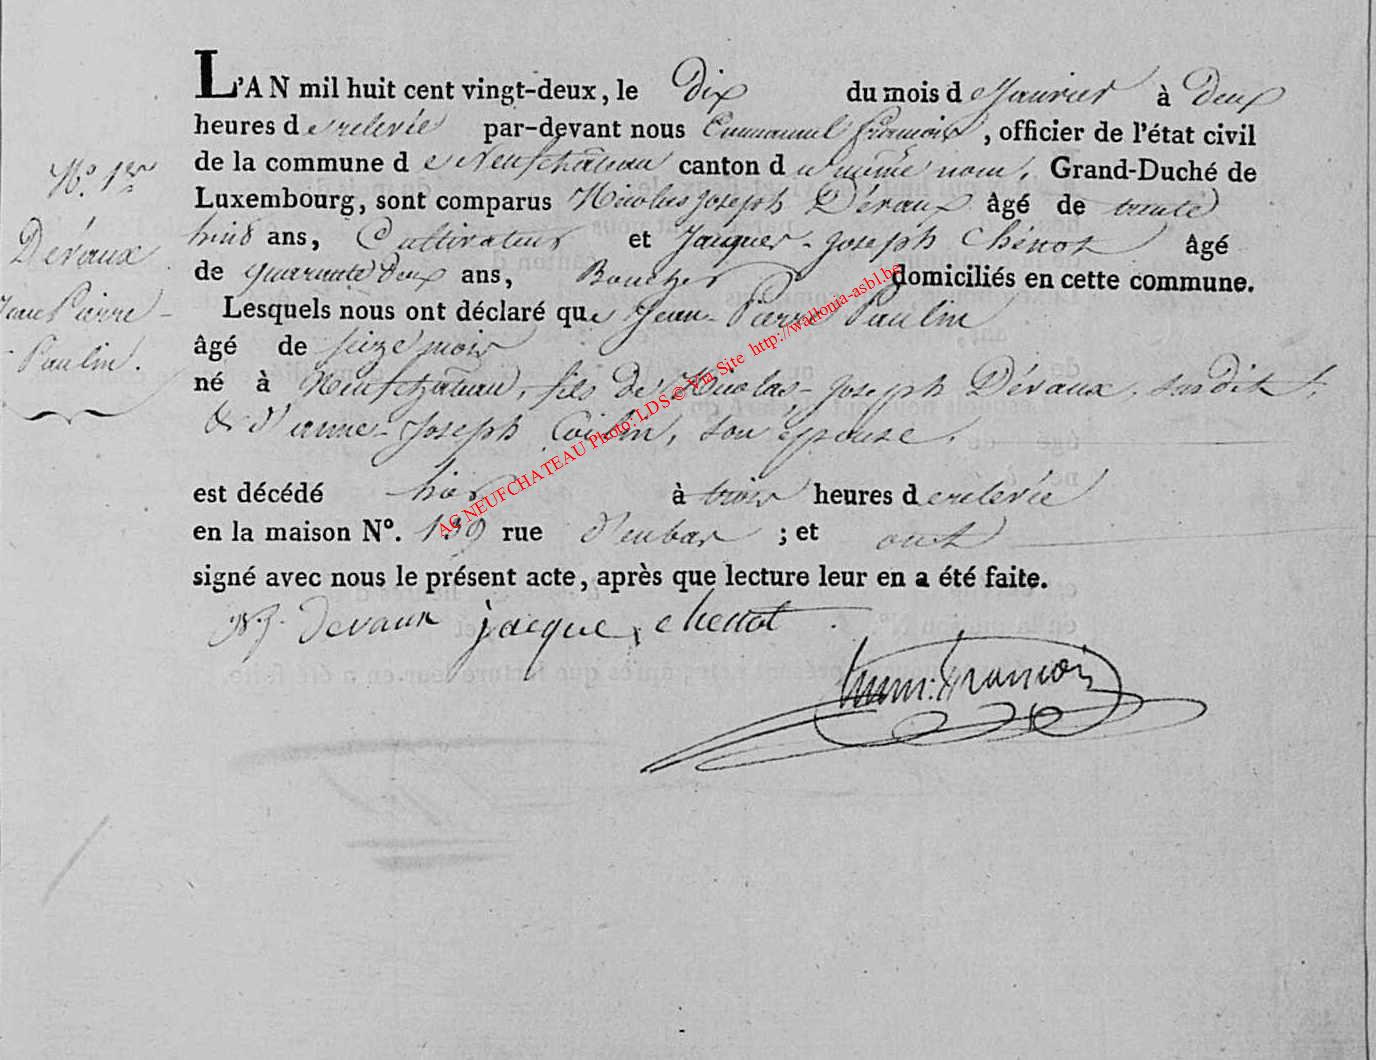 L'AN mil huit cent vingt-deux, le Dix du mois de Janvier à Deux
heures de relevée par-devant nous Emmanuel François, officier de l'état civil
de la commune de Neufchâteau canton du même nom, Grand-Duché de
Luxembourg, sont comparus Nicolas Joseph Dévaux âgé de trente
huit ans, Cultivateur et Jacques-Joseph Chénot âgé
de quarante deux ans, Boucher domiciliés en cette commune.
Lesquels nous ont déclaré que Jean-Pierre Paulin
âgé de seize mois
né à Neufchâteau, fils de Nicolas-Joseph Dévaux, susdit,
& d'anne-Joseph son épouse.
est décédé hier à trois heures de relevée
en la maison N°. 139 rue ; et ont
signé avec nous le présent acte, après que lecture leur en a été faite.
N.J. Devaux jacque chenot
Emm: François
N.° 1er
Dévaux
Jean Pierre
Paulin.
AC NEUFCHATEAU Photo: LDS © Via Site http://wallonia-asbl.be